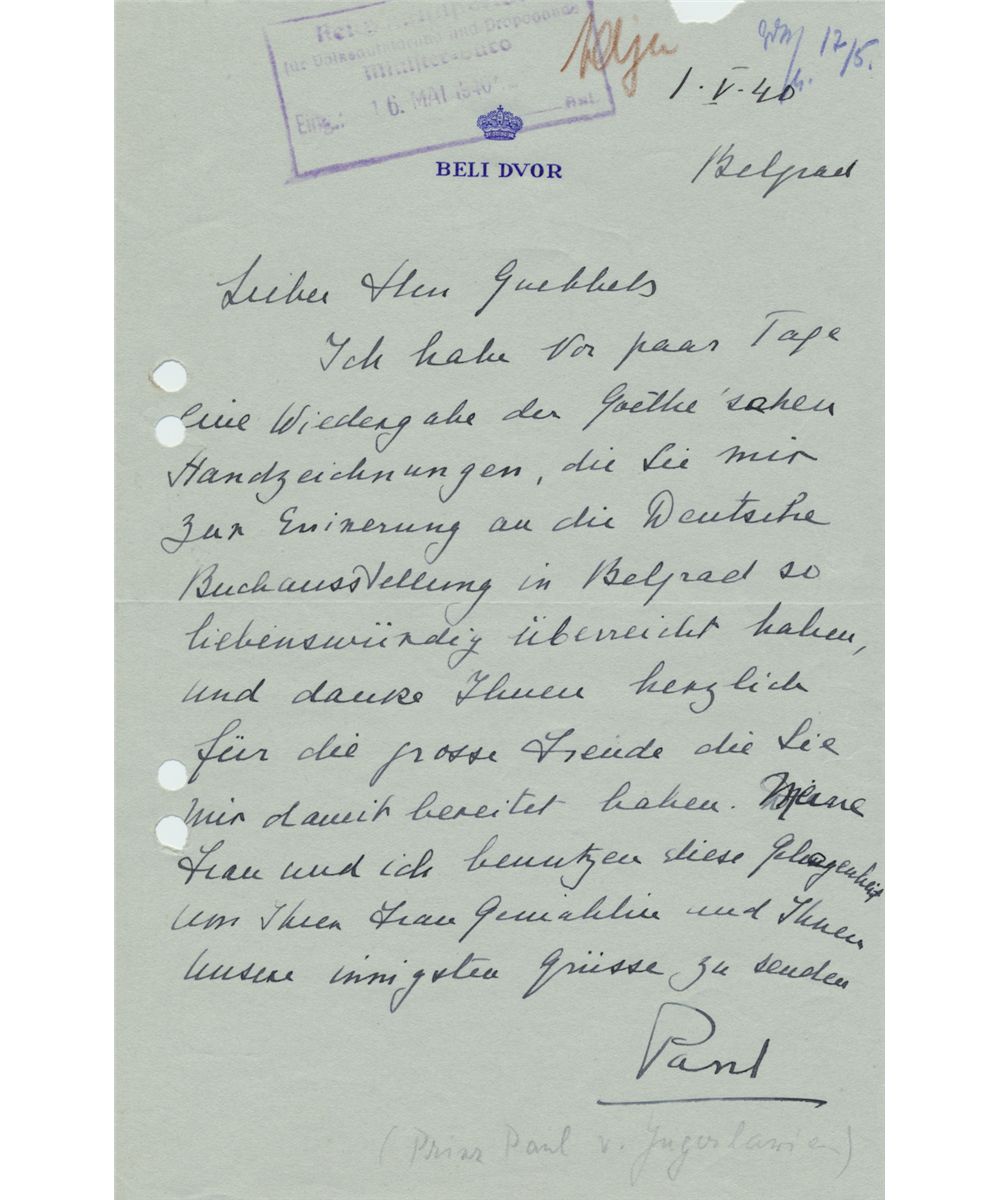 Reichsministerium
für Volksaufklärung und Propaganda
Ministerbüro
Eing.: 16. MAI 1940
Anl.
17/5.
1. V. 40
BELI DVOR
Belgrad
Lieber Herr Goebbels
Ich habe vor paar Tage
eine Wiedergabe der Goethe'schen
Handzeichnungen, die Sie mir
zur Erinerung an die Deutsche
Buchausstellung in Belgrad so
liebenswürdig überreicht haben,
und danke Ihnen herzlich
für die grosse Freude die Sie
mir damit bereitet haben. Meine
Frau und ich benutzen diese Gelegenheit
um Ihrer Frau Gemahlin und Ihnen
unsere innigsten Grüsse zu senden
Paul
(Prinz Paul v. Jugoslawien)